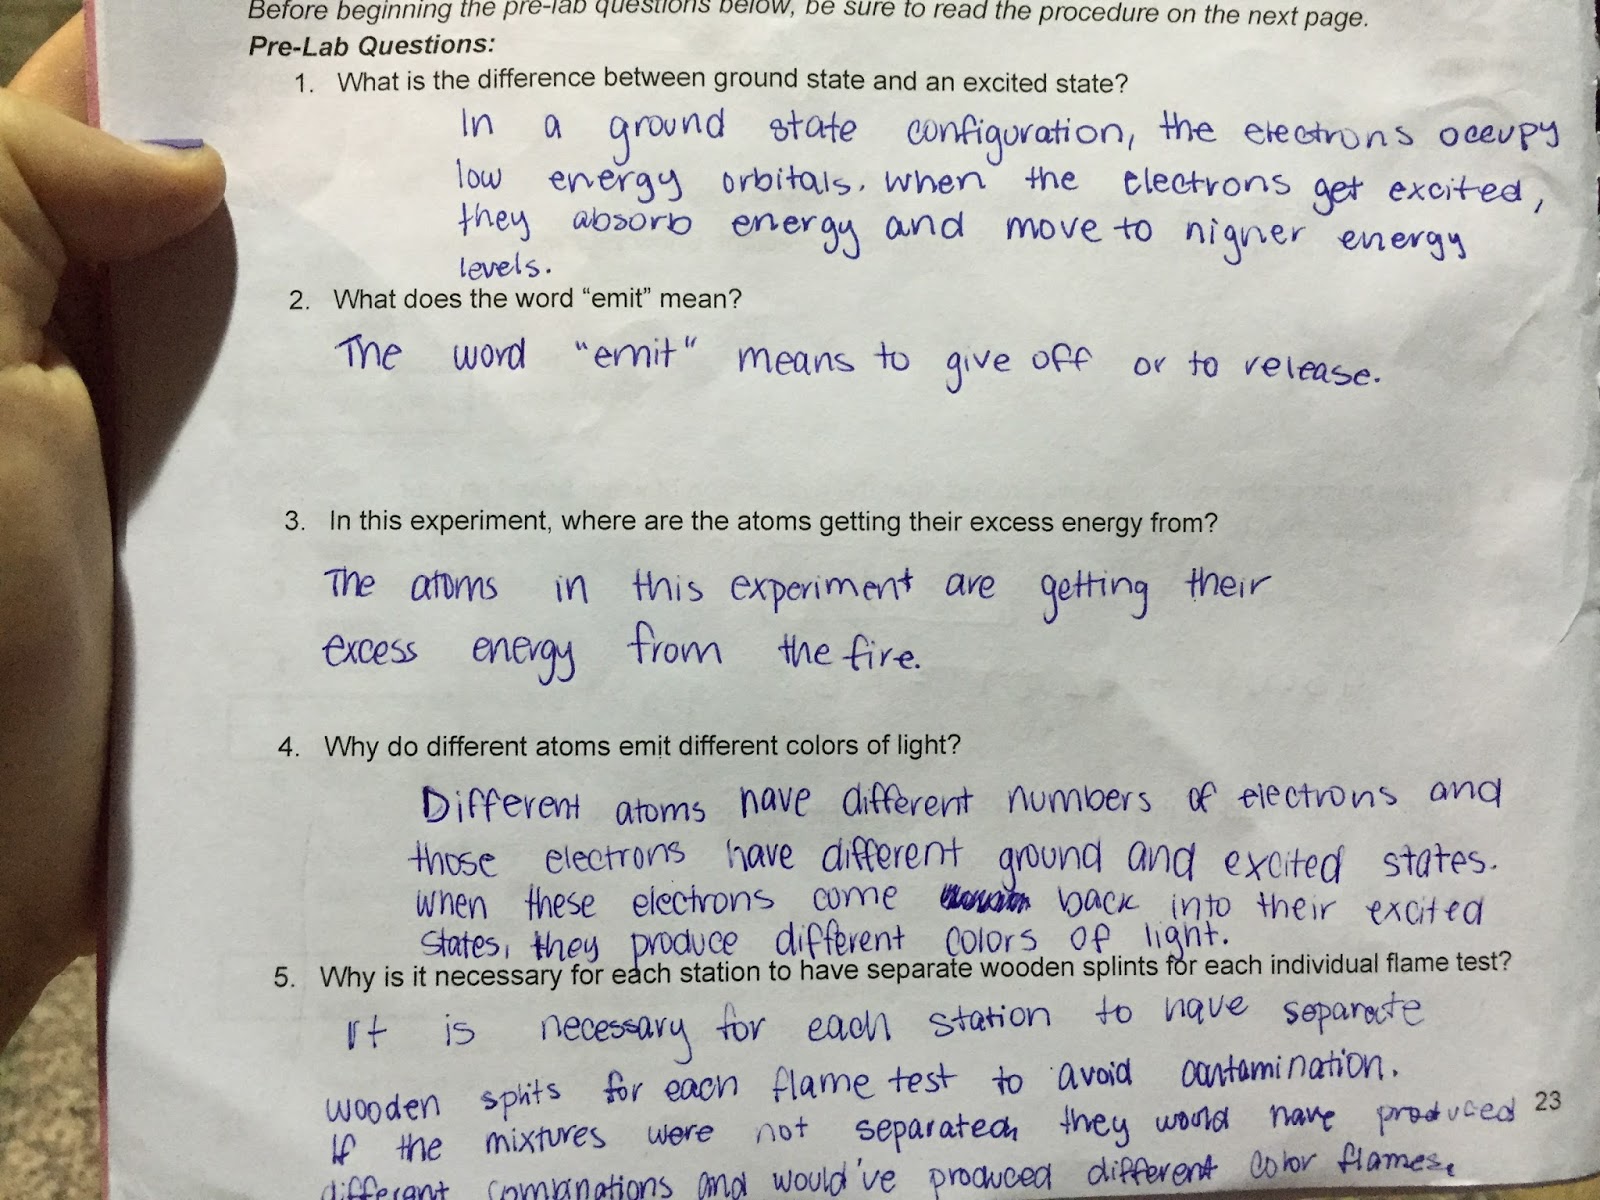 Before beginning the pre-lab questions below, be sure to read the procedure on the next page.
Pre-Lab Questions:
1. What is the difference between ground state and an excited state?
In a ground state configuration, the electrons occupy
low energy orbitals. When the electrons get excited,
they absorb energy and move to higher energy
levels.
2. What does the word “emit” mean?
The word "emit" means to give off or to release.
3. In this experiment, where are the atoms getting their excess energy from?
The atoms in this experiment are getting their
excess energy from the fire.
4. Why do different atoms emit different colors of light?
Different atoms have different numbers of electrons and
those electrons have different ground and excited states.
When these electrons come back into their excited
states, they produce different colors of light.
5. Why is it necessary for each station to have separate wooden splints for each individual flame test?
It is necessary for each station to have separate
wooden splits for each flame test to avoid contamination.
If the mixtures were not separated, they would have produced
different combinations and would've produced different color flames.
23